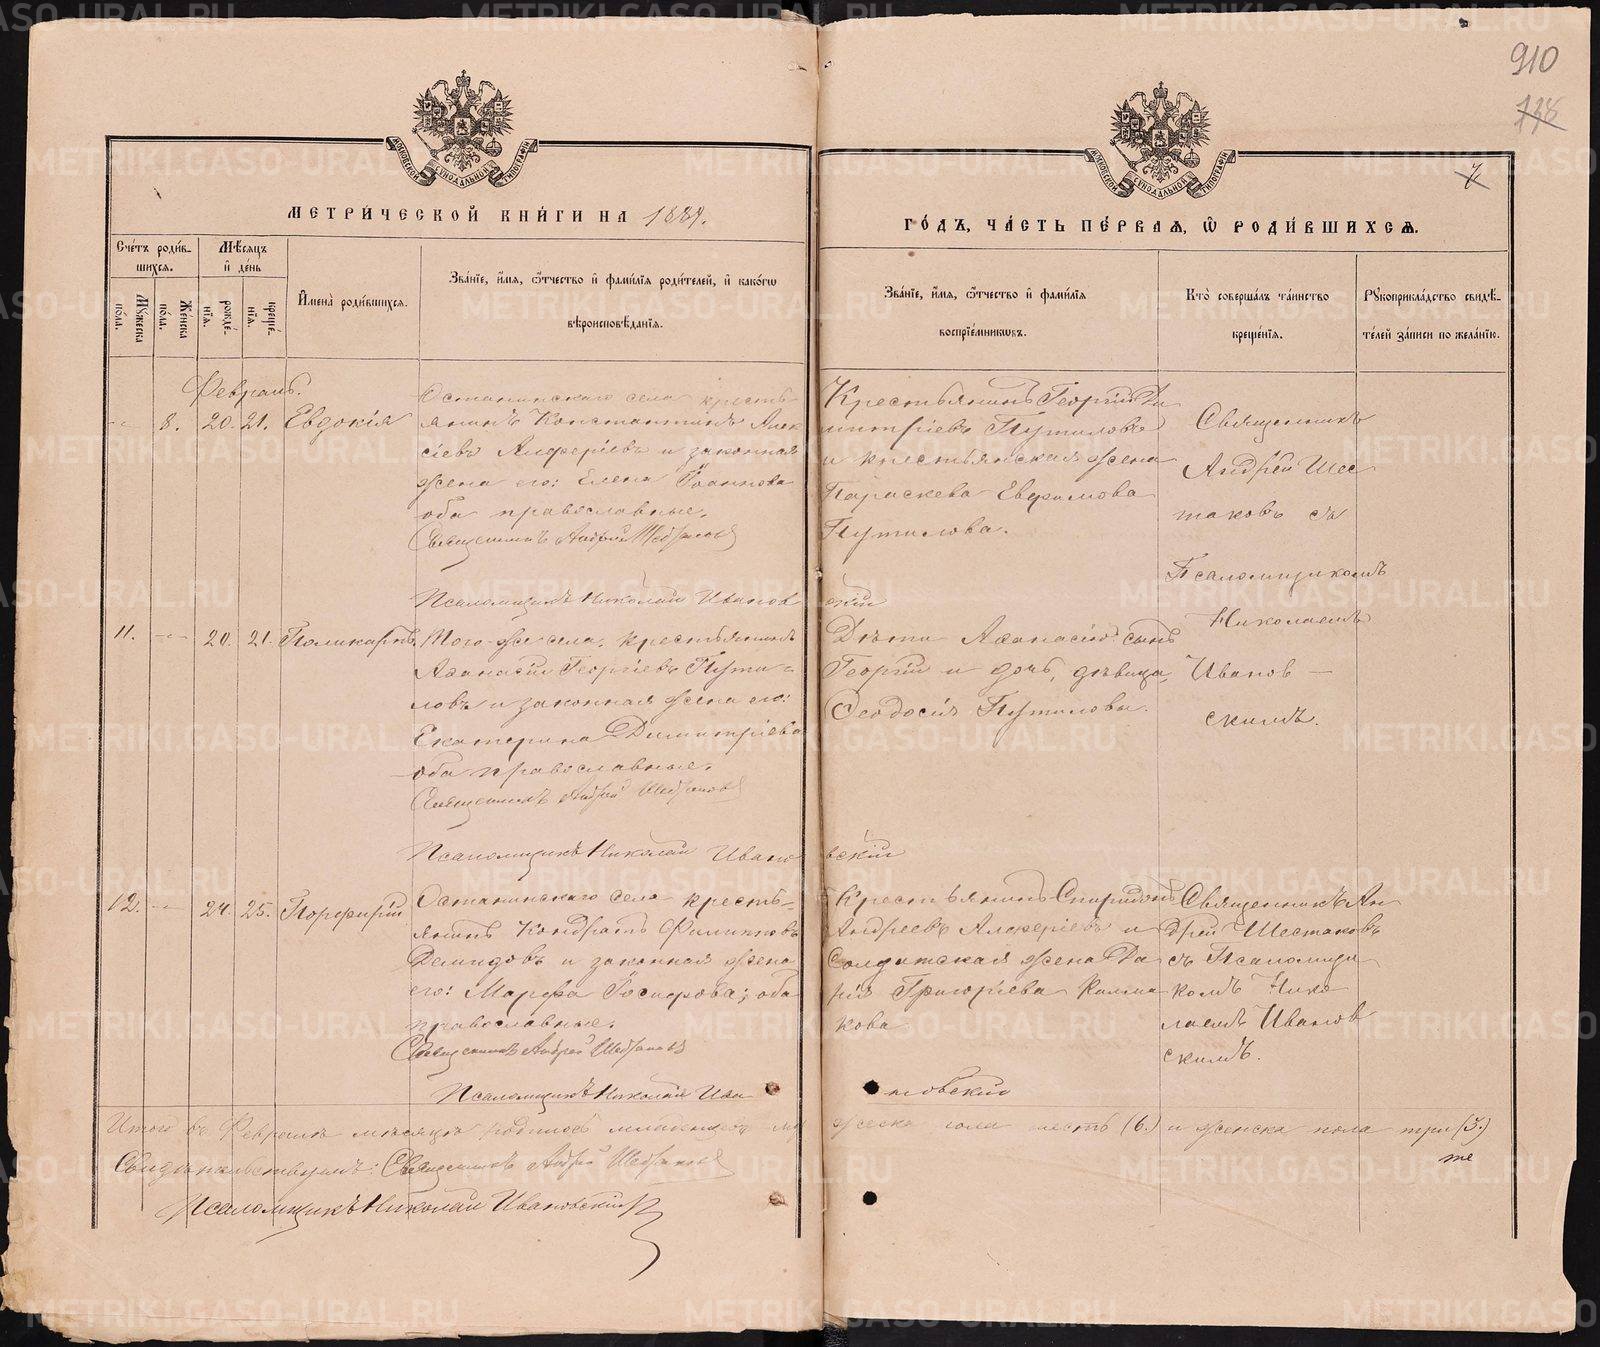 910
738
7
МЕТРИ́ЧЕСКОЙ КНИ́ГИ НА 1889.
ГО́ДЪ, ЧА́СТЬ ПЕ́РВАѦ, Ѽ РОДИ́ВШИХСѦ.
Сче́тъ роди́в-
шихсѧ.
Мѣ́сѧцъ
и҆ де́нь
Му́жеска
по́ла.
Же́нска
по́ла.
рожде́-
нїѧ.
креще́-
нїѧ.
И҆мена̀ роди́вшихсѧ.
Зва́нїе, и҆́мѧ, ѻ҆́тчество и҆ фами́лїѧ роди́телей, и҆ како́гѡ
вѣроисповѣ́данїѧ.
Зва́нїе, и҆́мѧ, ѻ҆́тчество и҆ фами́лїѧ
воспрїе́мникѡвъ.
Кто̀ соверша́лъ та́инство
креще́нїѧ.
Рꙋкоприкла́дство свидѣ́-
телей за́писи по жела́нїю.
Февраль.
8. 20. 21. Евдокія
Останинскаго села кресть-
янинъ Константинъ Алек
сіевъ Алферіевъ и законная
жена его: Елена Іоаннова
оба православные.
Священникъ Андрей Шестаковъ
Псаломщикъ Николай Иванов
скій
Крестьянинъ Георгій Ди
митріевъ Путиловъ
и крестьянская жена
Параскева Евфимова
Путилова.
Священникъ
Андрей Шес
таковъ съ
Псаломщикомъ
Николаемъ
Иванов
скимъ.
11. 20. 21. Поликарпъ.
Того же села, крестьянинъ
Аѳанасій Георгіевъ Пути-
ловъ и законная жена его:
Екатерина Димитріева
оба православные.
Священникъ Андрей Шестаковъ
Псаломщикъ Николай Ивано
вскій
Дѣти Аѳанасія: сынъ
Георгій и дочь, дѣвица,
Ѳеодосія Путиловы.
12. 24. 25. Порфирій
Останинскаго села кресть-
янинъ Кондратъ Филипповъ
Демидовъ и законная жена
его: Марѳа Іосифова; оба
православные.
Священникъ Андрей Шестаковъ
Псаломщикъ Николай Ива
новскій
Крестьянинъ Спиридонъ
Андреевъ Алферіевъ и
Солдатская жена Да
рія Григорьева Колма
кова
Священникъ Ан
дрей Шестаковъ
съ Псаломщи
комъ Нико
лаемъ Иванов
скимъ.
Итого въ Февралѣ мѣсяцѣ родилось младенцевъ му
жеска пола шесть (6.) и женска пола три (3.)
те
Свидѣтельствуемъ: Священникъ Андрей Шестаковъ
Псаломщикъ Николай Ивановскій
METRIKI.GASO-URAL.RU